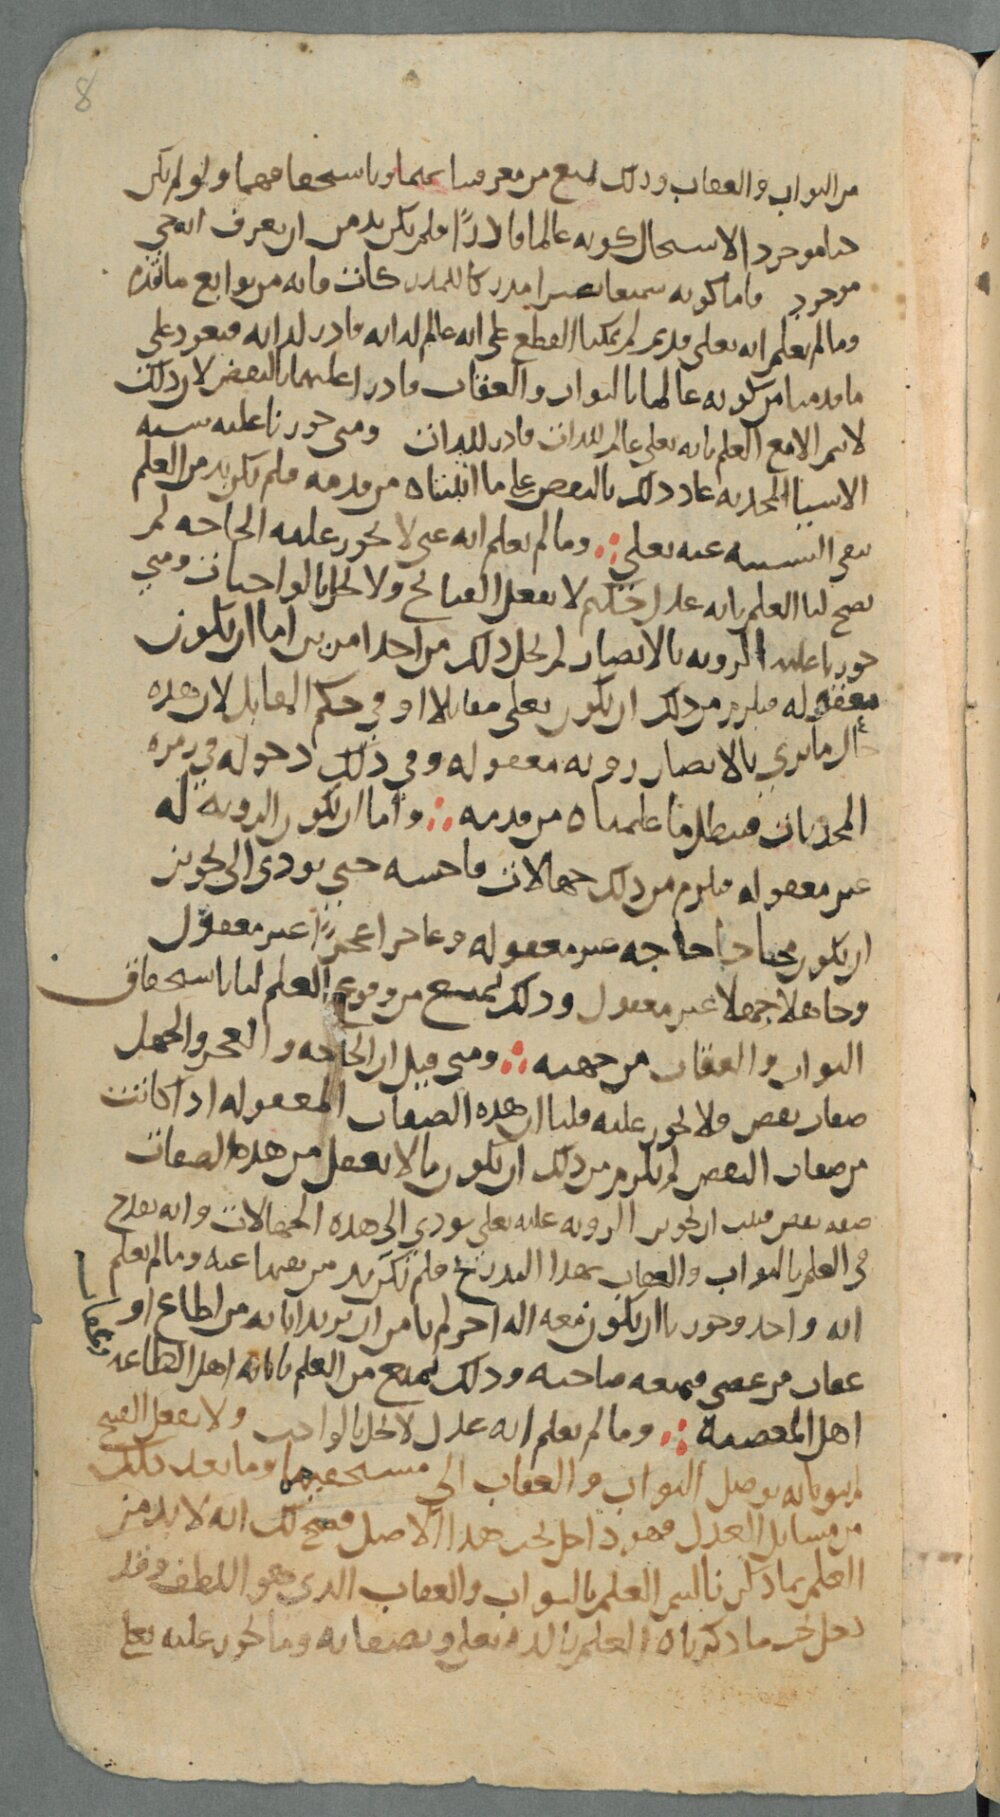 8
من الثواب والعقاب وذلك يمنع من معرفتنا بهما وباستحقاقهما ولو لم يكن
حيا موجودا لاستحال كونه عالما قادرًا فلم يكن بد من ان يعرف انه حي
موجود واما كونه سميعا بصيرا مدركا للمدركات فانه من توابع ما تقدم
وما لم نعلم انه تعلى قديم لم يمكنا القطع على انه عالم لذاته قادر لذاته فيعود على
ما قدمنا من كونه عالما بالثواب والعقاب وقادرا عليهما بالنقض لان ذلك
لا يتم الا مع العلم بانه تعلى عالم للذات قادر للذات ومتى جوزنا عليه شبه
الاشيا المحدثه عاد ذلك بالنقض على ما اثبتناه من قدمه فلم يكن بد من العلم
بنفي التشبيه عنه تعلى ؞ وما لم نعلم انه غني لا تجوز عليه الحاجه لم
يصح لنا العلم بانه عدل حكيم لا يفعل القبائح ولا يخل بالواجبات ومتى
جوزنا عليه الرويه بالابصار لم يخل ذلك من احد امرين اما ان يكون
معقوله فيلزم من ذلك ان يكون تعلى مقابلا او في حكم المقابل لان هذه
حال ما يرى بالابصار رويه معقوله وفي ذلك دخوله في زمره
المحدثات فيبطل ما علمناه من قدمه ؞ واما ان يكون الرويه له
غير معقوله فيلزم من ذلك جهالات فاحشه حتى يودي الى تجويز
ان يكون محتاجا حاجه غير معقوله وعاجزا عجزًا غير معقول
وجاهلا جهلا غير معقول وذلك يمنع من وقوع العلم لنا باستحقاق
الثواب والعقاب من جهته ؞ ومتى قيل ان الحاجه والعجز والجهل
صفات نقص فلا تجوز عليه قلنا ان هذه الصفات المعقوله اذا كانت
من صفات النقص لم يلزم من ذلك ان يكون ما لا يعقل من هذه الصفات
صفه نقص فثبت ان تجويز الرويه عليه تعلى يودي الى هذه الجهالات وانه يقدح
في العلم بالثواب والعقاب بهذا التدريج فلم يكن بد من نفيها عنه وما لم نعلم
انه واحد وجوزنا ان يكون معه اله اخر لم نامن ان يريد اثابه من اطاع او
عقاب من عصى فيمنعه صاحبه وذلك يمنع من العلم باثابه اهل الطاعه
وعقاب
اهل المعصية ؞ وما لم نعلم انه عدل لا يخل بالواجب ولا يفعل القبيح
لم نثق بانه يوصل الثواب والعقاب الى مستحقيهما وما بعد ذلك
من مسايل العدل فهو داخل تحت هذا الاصل فصح لك انه لا بد من
العلم بما ذكرنا ليتم العلم بالثواب والعقاب الذي هو اللطف وقد
دخل تحت ما ذكرناه العلم بالله تعلى وبصفاته وما تجوز عليه تعلى